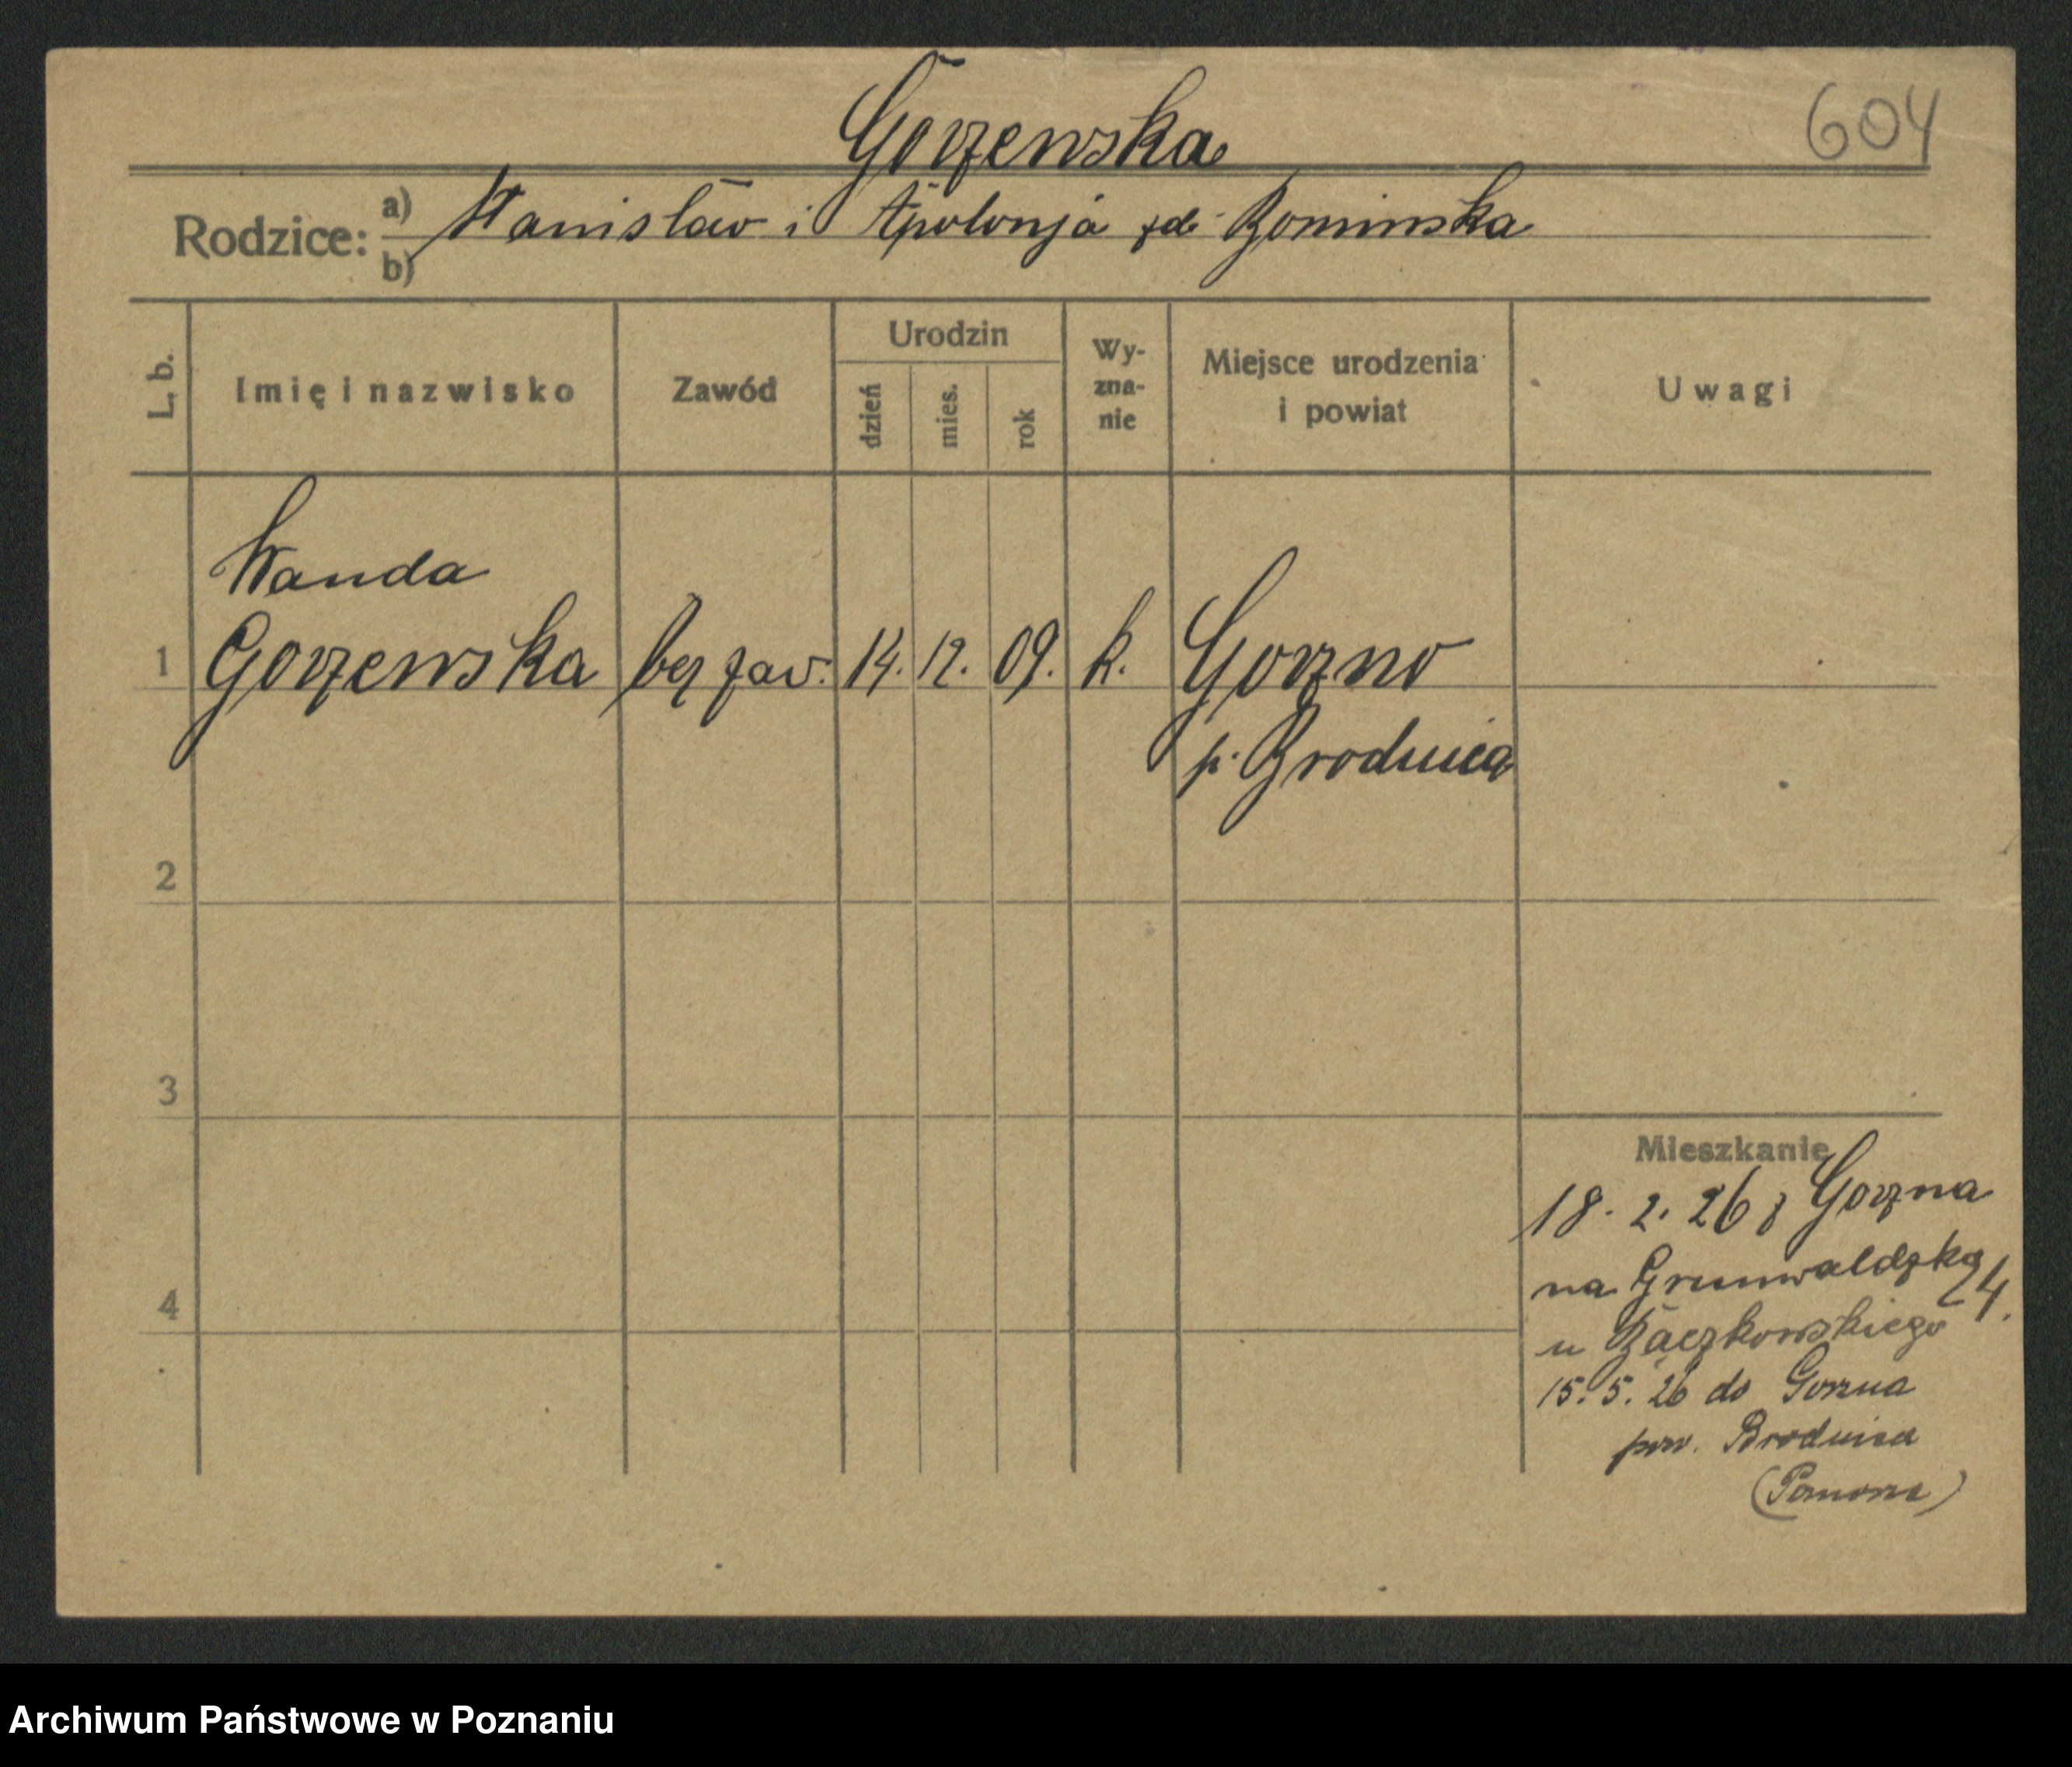 604
Gorzewska
Rodzice: a) Stanisław i Apolonja zd. Bominska
b)
L. b.
Imię i nazwisko
Zawód
Urodzin
dzień
mies.
rok
Wy-
zna-
nie
Miejsce urodzenia
i powiat
Uwagi
Wanda
1 Gorzewska bez zaw. 14. 12. 09. k. Gorzno
p. Brodnica
2
3
4
Mieszkanie
18. 2. 26 z Gorzna
na Grunwaldzką
24.
u Bączkowskiego
15. 5. 26 do Gorzna
pow. Brodnica
(Pomorze)
Archiwum Państwowe w Poznaniu